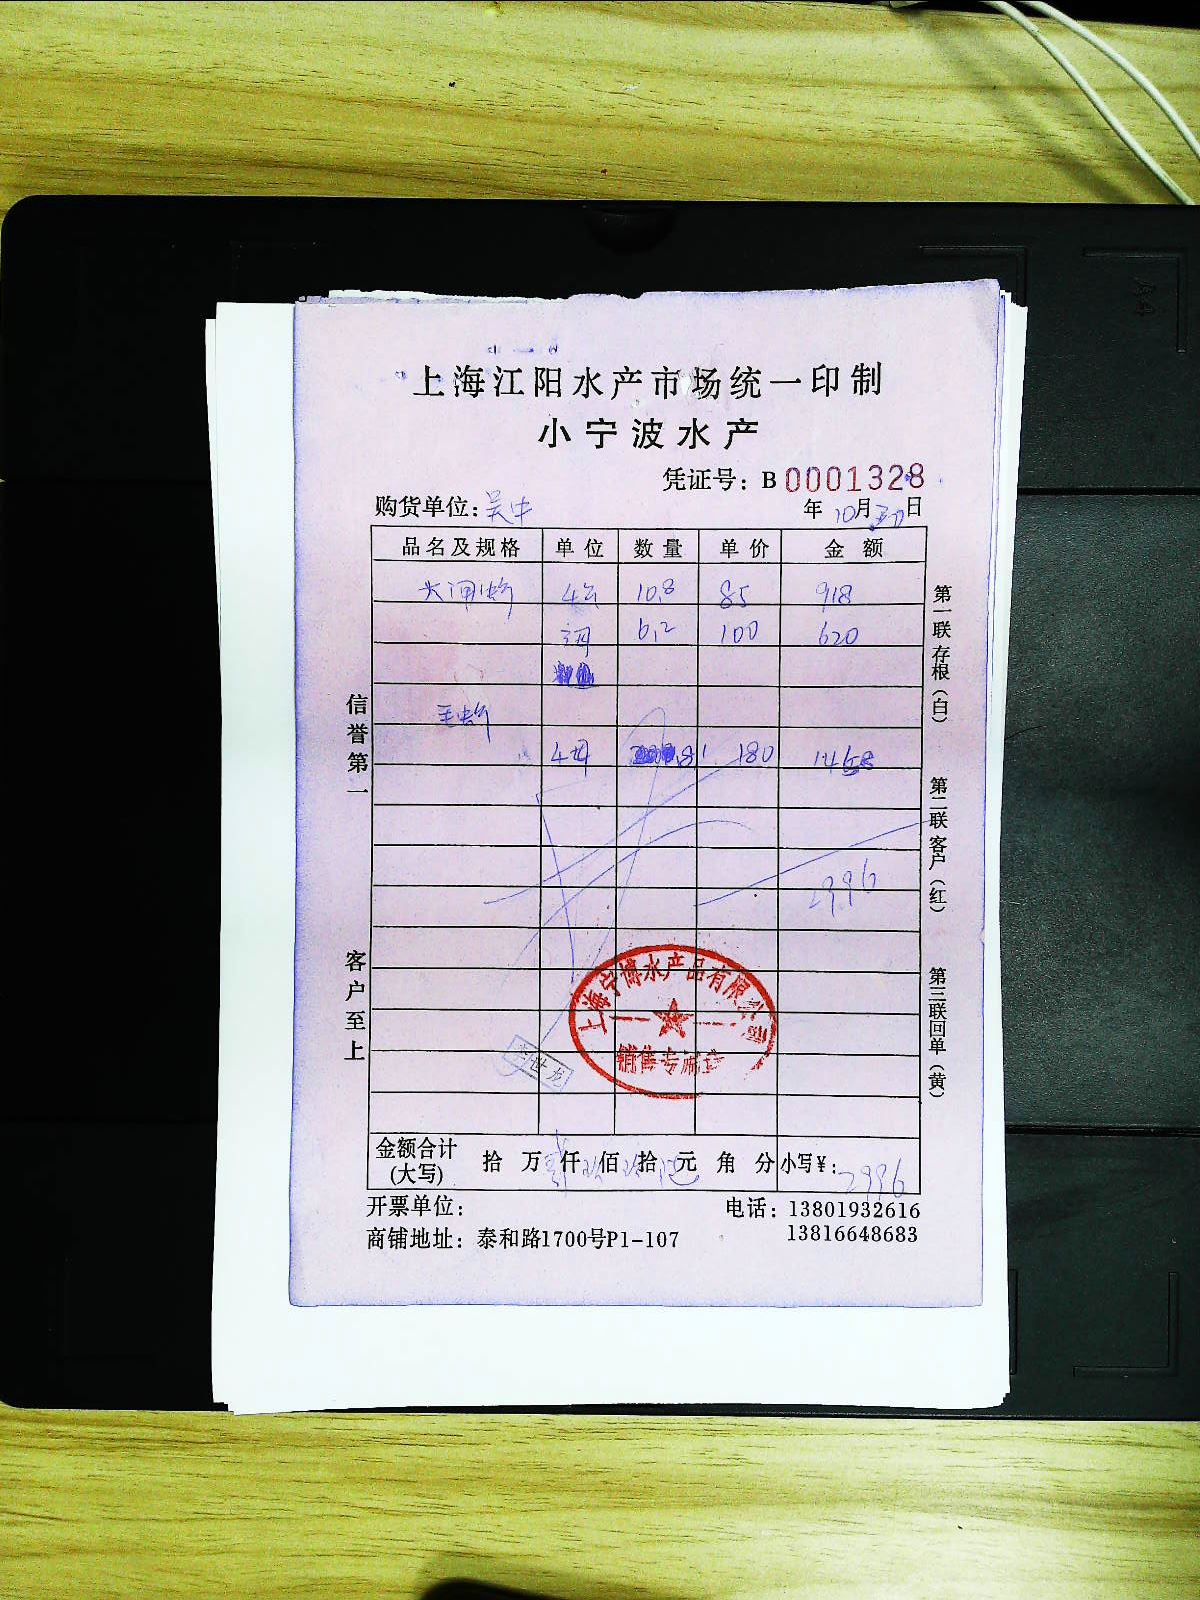 上海江阳水产市场统一印制
小宁波水产
凭证号：B 0001328
购货单位：吴中
年 10月 日
品名及规格 单位 数量 单价 金额
大闸蟹 4公 10.8 85 918
3母 6.2 100 620
王蟹
4母 8.1 180 1458
2996
信誉第一
客户至上
第一联存根（白）
第二联客户（红）
第三联回单（黄）
上海宁博水产品有限公司
销售专用章
李世龙
金额合计(大写) 拾 万 仟 佰 拾 元 角 分 小写¥：2996
开票单位：
电话：13801932616
13816648683
商铺地址：泰和路1700号P1-107
A4